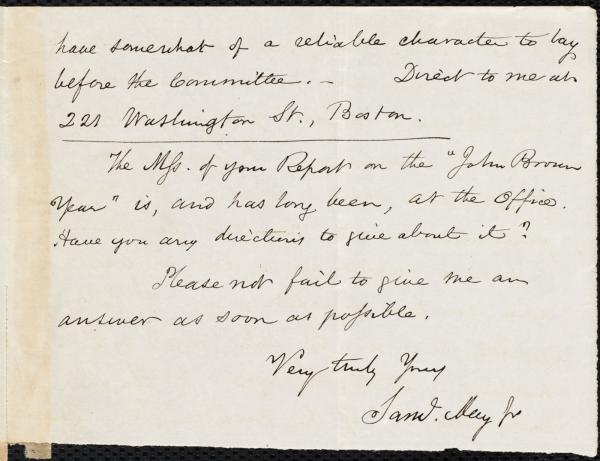 have somewhat of a reliable character to lay
before the Committee. — Direct to me at
221 Washington St., Boston.
The Mss. of your Report on the "John Brown
Year" is, and has long been, at the Office.
Have you any directions to give about it?
Please not fail to give me an
answer as soon as possible.
Very truly Yours
Saml. May Jr